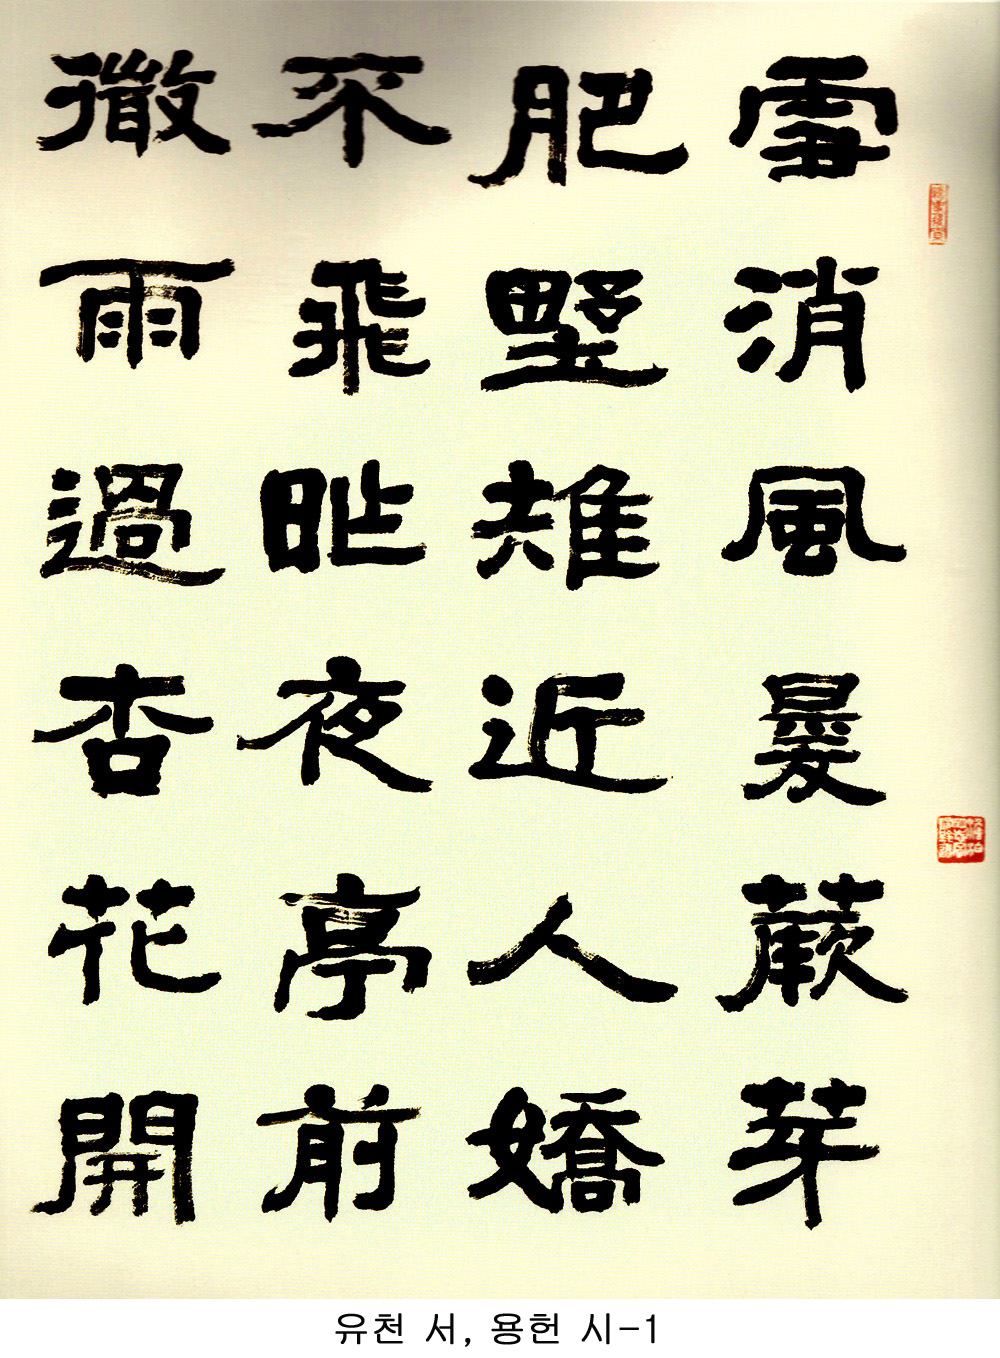 雪消風暖蕨芽
肥墅雉近人嬌
不飛昨夜亭前
微雨過杏花開
유천 서, 용헌 시-1